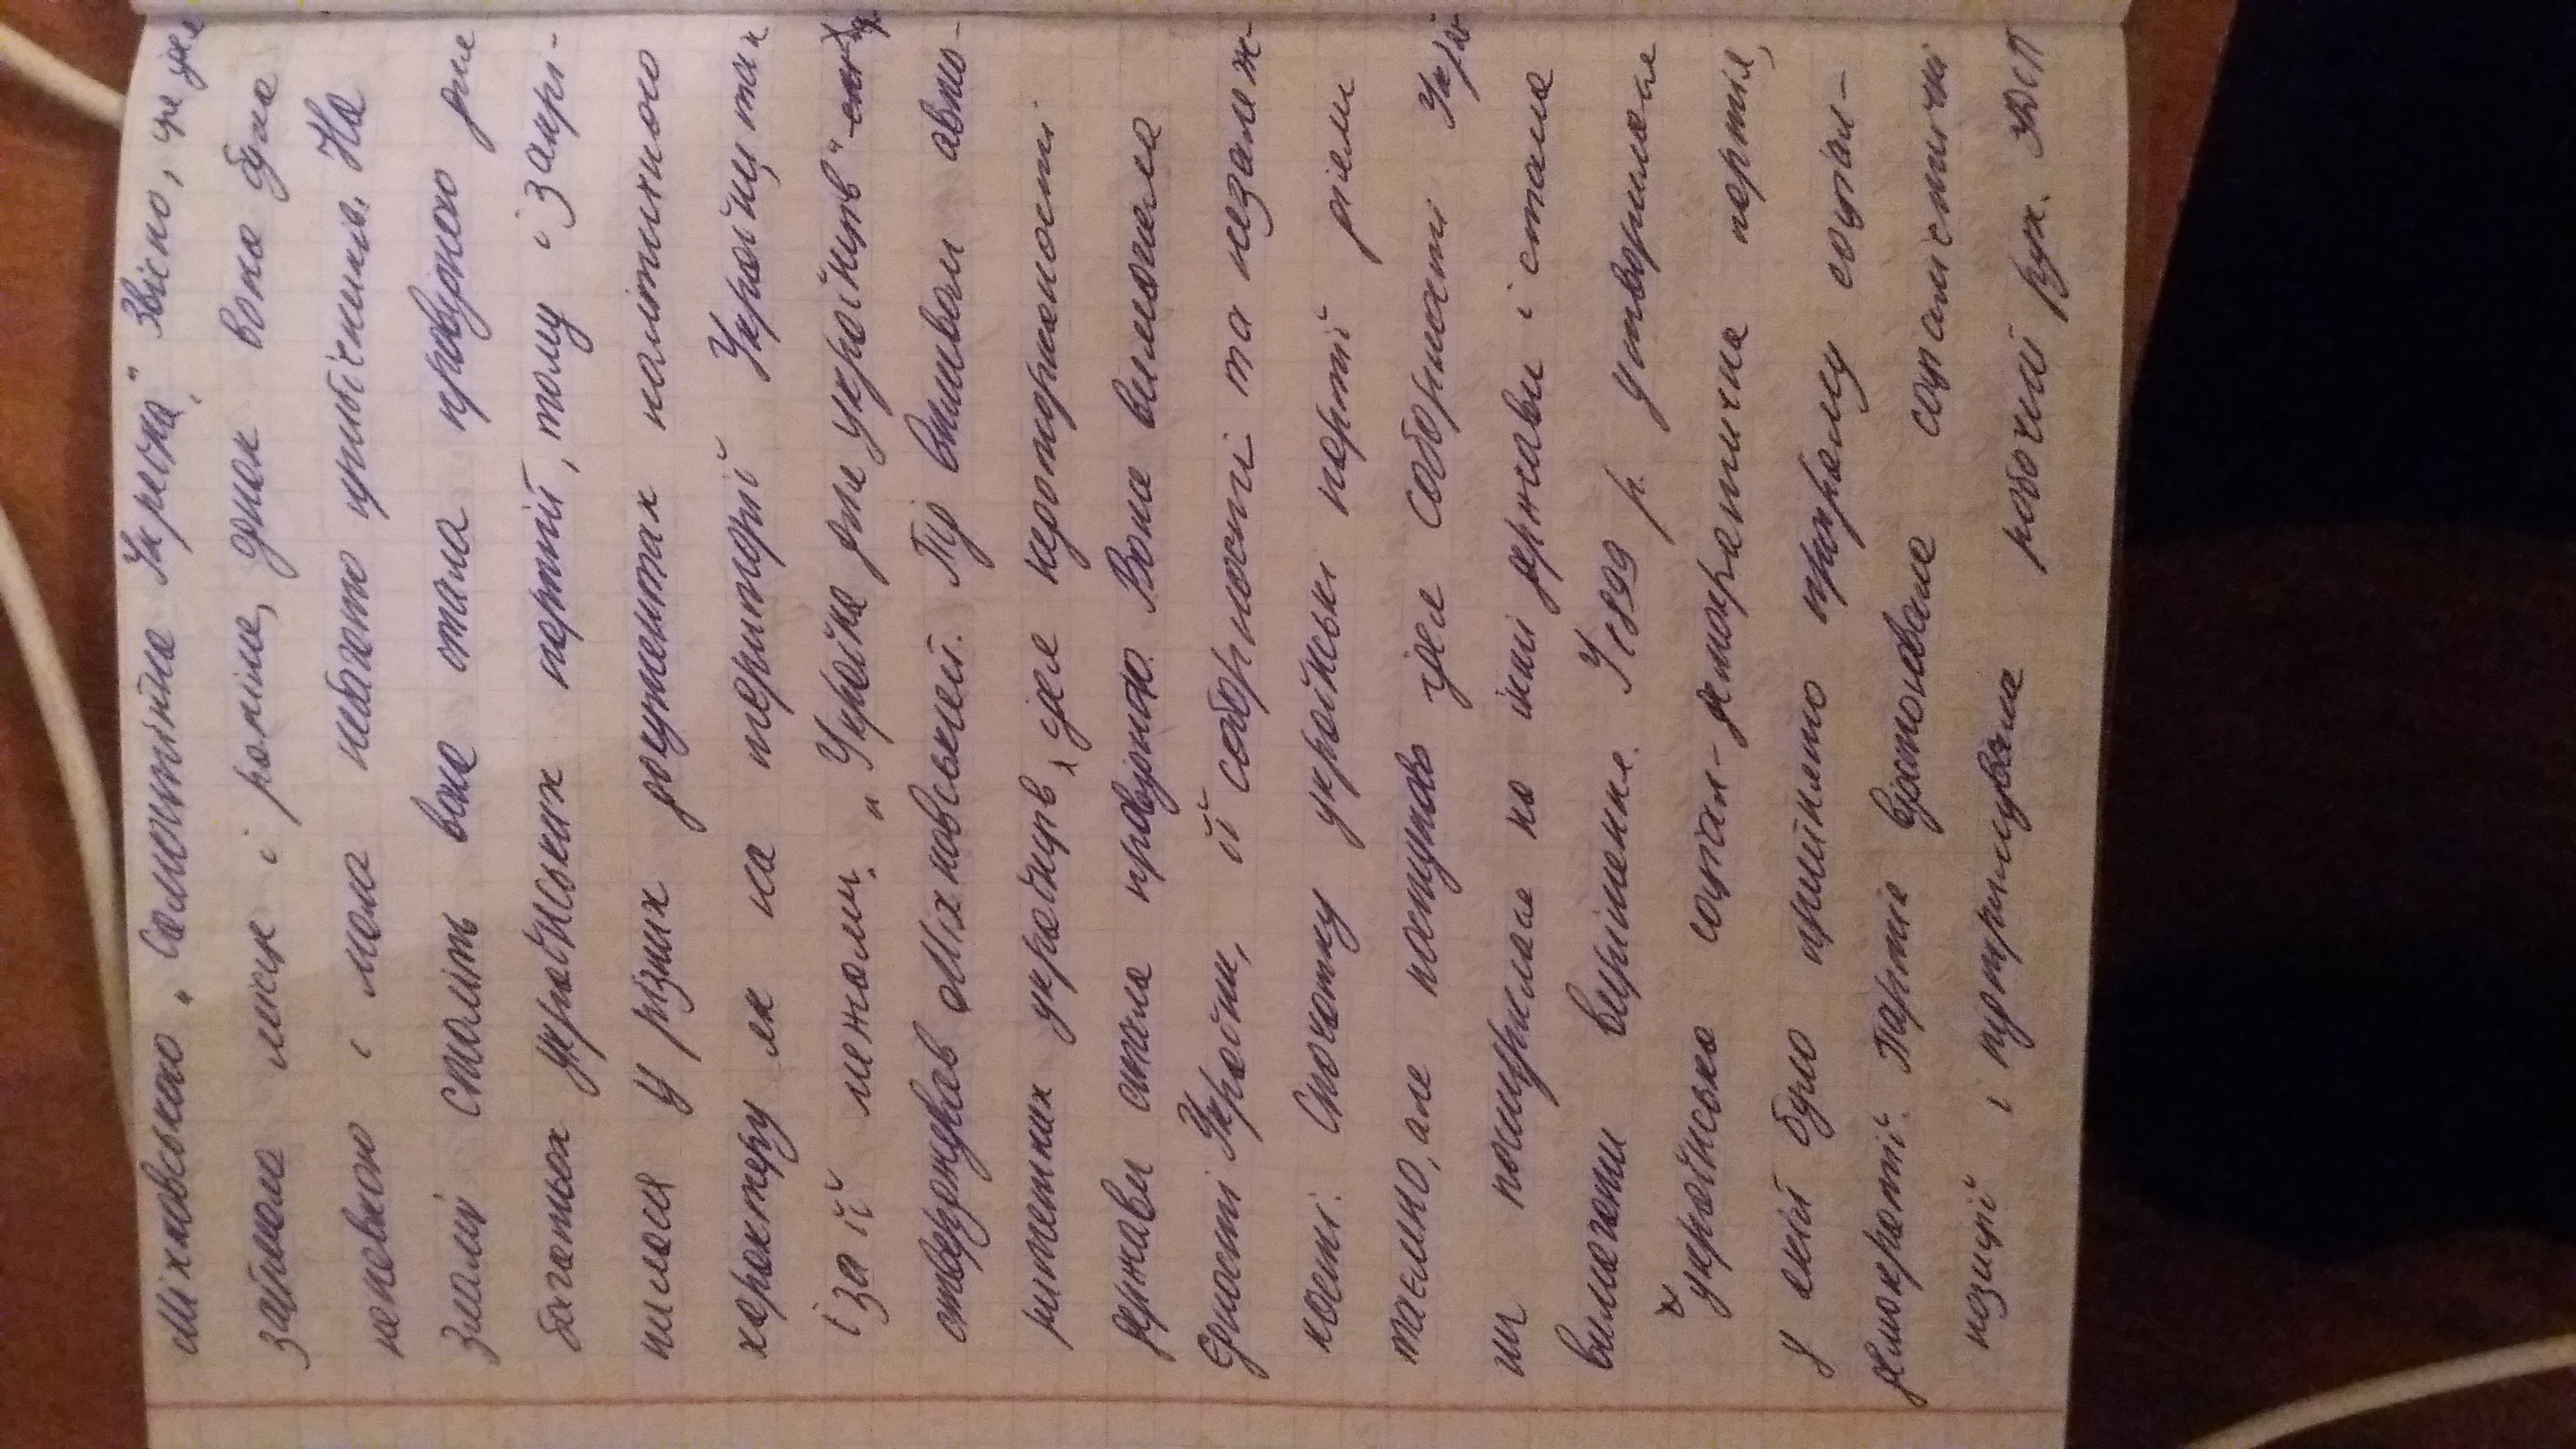 Міхновського „Самостійна Україна". Звісно, ця ідея
зазнала лиск і раніше, однак вона була
неповною і мала небагато прибічників. На
зламі століть вона стала провідною для
багатьох українських партій, тому і закрі-
пилася у різних документах політичного
характеру як на території України так
і за її межами. „Україна для українців"
стверджував Міхновський. Під впливом авто-
ритетних українців, ідея недоторканості
держави стала провідною. Вона вимагала
єдності України, її соборності та незалеж-
ності. Спочатку українські партії діяли
таємно, але поступово ідея соборності Украї-
ни поширилася на інші держави і стала
вимагати вирішення. У 1899 р. утворилася
Українська соціал-демократична партія,
у якій було прийнято програму соціал-
демократії. Партія відстоювала соціалістичні
позиції і підтримувала робочий рух. УСДП